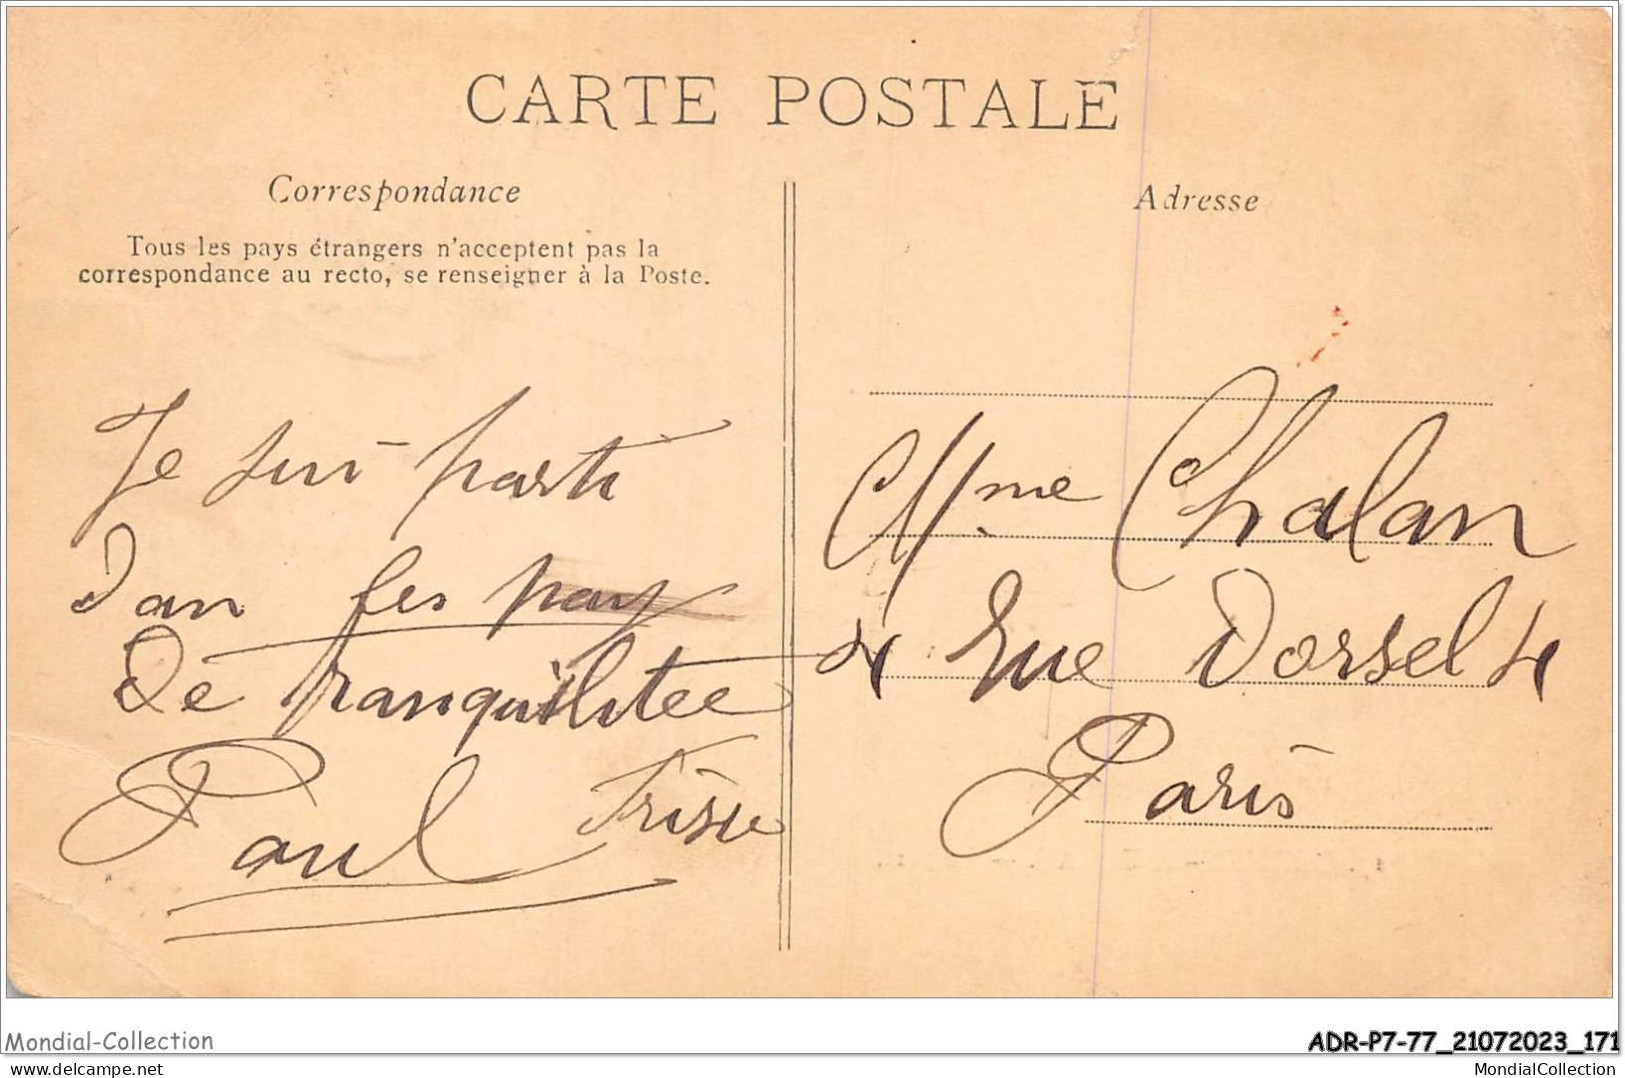 CARTE POSTALE
Correspondance
Tous les pays étrangers n'acceptent pas la
correspondance au recto, se renseigner à la Poste.
Je sui parti
Dan les pay
De tranquilitee
Paul
Adresse
Mme Chalan
4 Rue Dorsel 4
Paris
Mondial-Collection
ADR-P7-77_21072023_171
MondialCollection